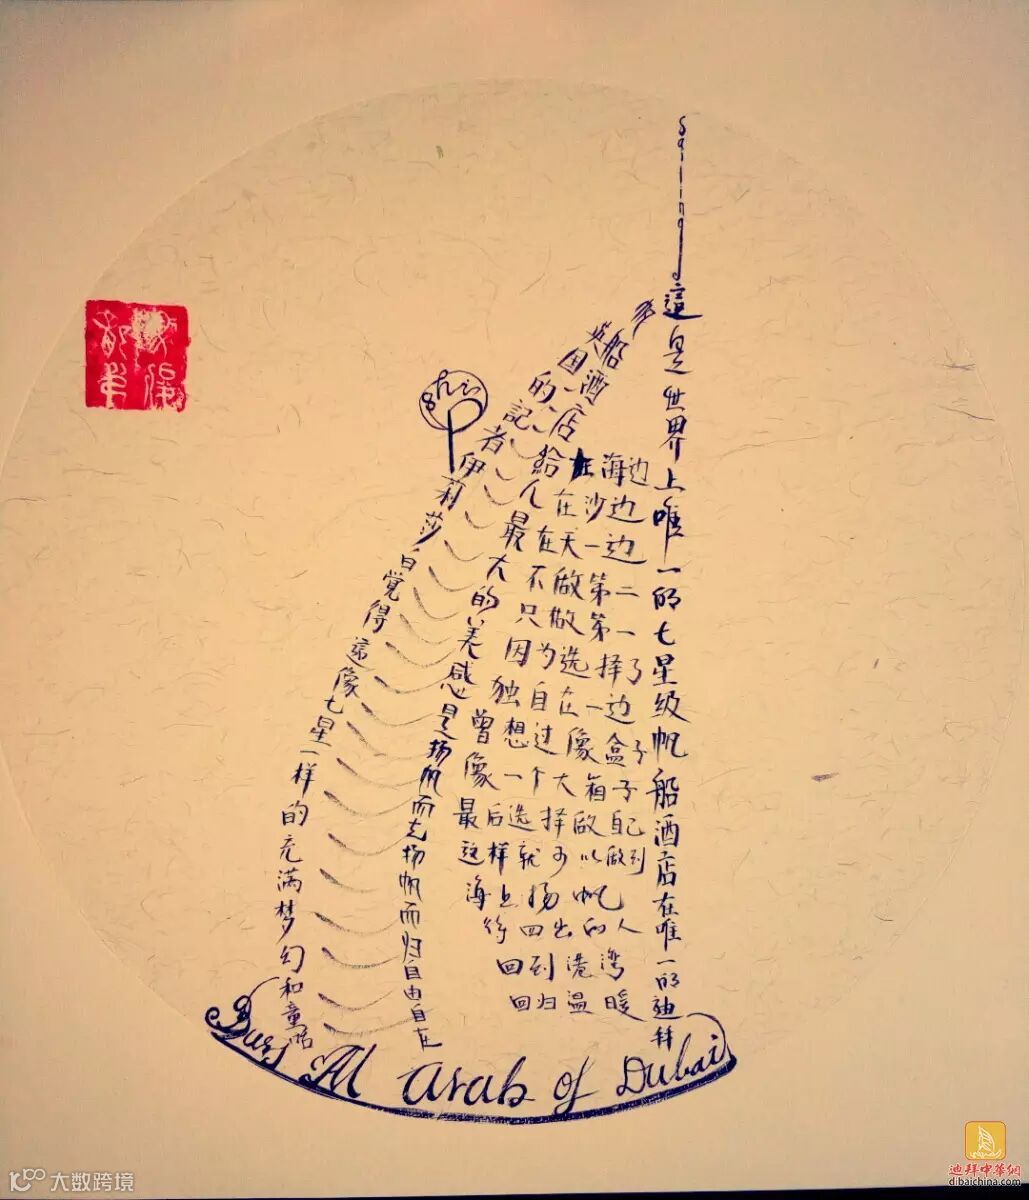 sailing
這是世界上唯一的七星级帆船酒店在唯一的迪拜
船酒店給人最大的美感是扬帆而去扬帆而归自由自在
英国的記者伊莉莎白觉得這像七星一样的充满梦幻和童话
在海边
在沙边
在天一边
不做第二
只做第一
因为选择了
独自在一边
曾想过像盒子
像一个大箱子
最后选择做自己
这样就可以做到
海上扬帆
行四出的人
回到港湾
回归温暖
Burj Al Arab of Dubai
大数跨境
迪拜中華網
dibaichina.com